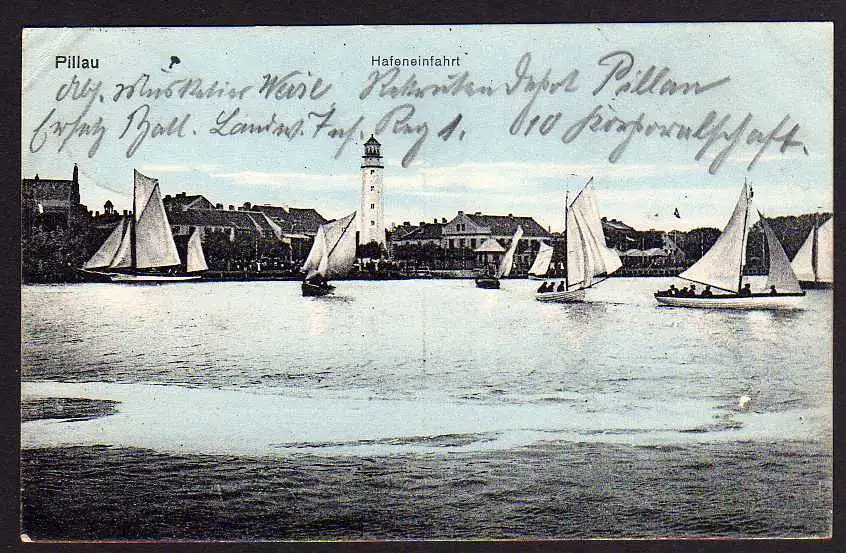 Pillau
Hafeneinfahrt
Abs. Musketier Weisl Rekruten Depot Pillau
Ersatz Batl. Landw. Inf. Reg 1. Korporalschaft